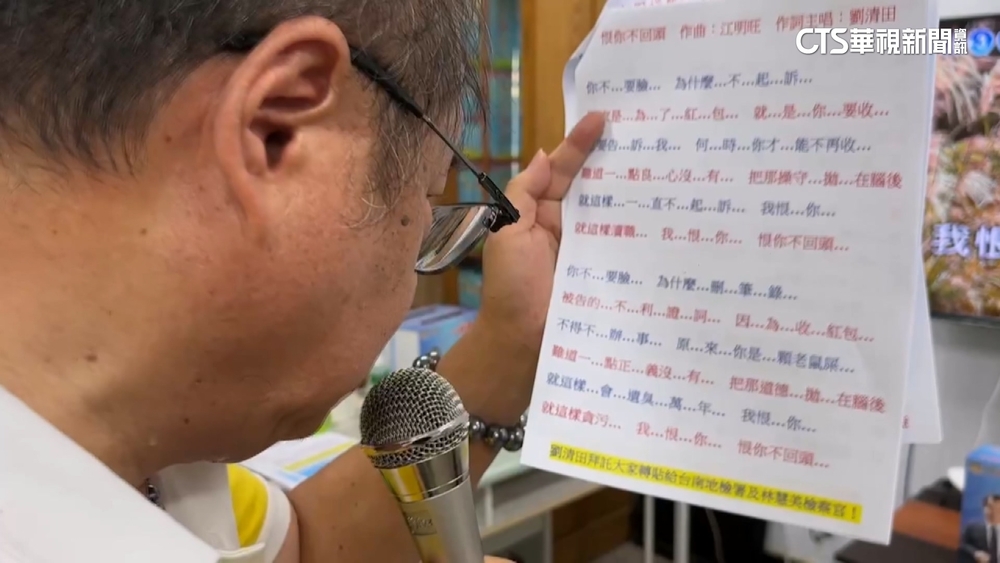 CTS華視新聞資訊
恨你不回頭 作曲：江明旺 作詞主唱：劉清田
你不…要臉… 為什麼…不…起…訴…
是…為…了…紅…包… 就…是…你…要收…
要告…訴…我… 何…時…你才…能不再收…
難道一…點良…心沒…有… 把那操守…拋…在腦後
就這樣…一…直不…起…訴… 我恨…你…
就這樣瀆職… 我…恨…你… 恨你不回頭…
你不…要臉… 為什麼…刪…筆…錄…
被告的…不…利…證…詞… 因…為…收…紅包…
不得不…辦…事… 原…來…你是…顆老鼠屎…
難道一…點正…義沒…有… 把那道德…拋…在腦後
就這樣…會…遺臭…萬…年… 我恨…你…
就這樣貪污… 我…恨…你… 恨你不回頭…
劉清田拜託大家轉貼給台南地檢署及林慧美檢察官！
我恨